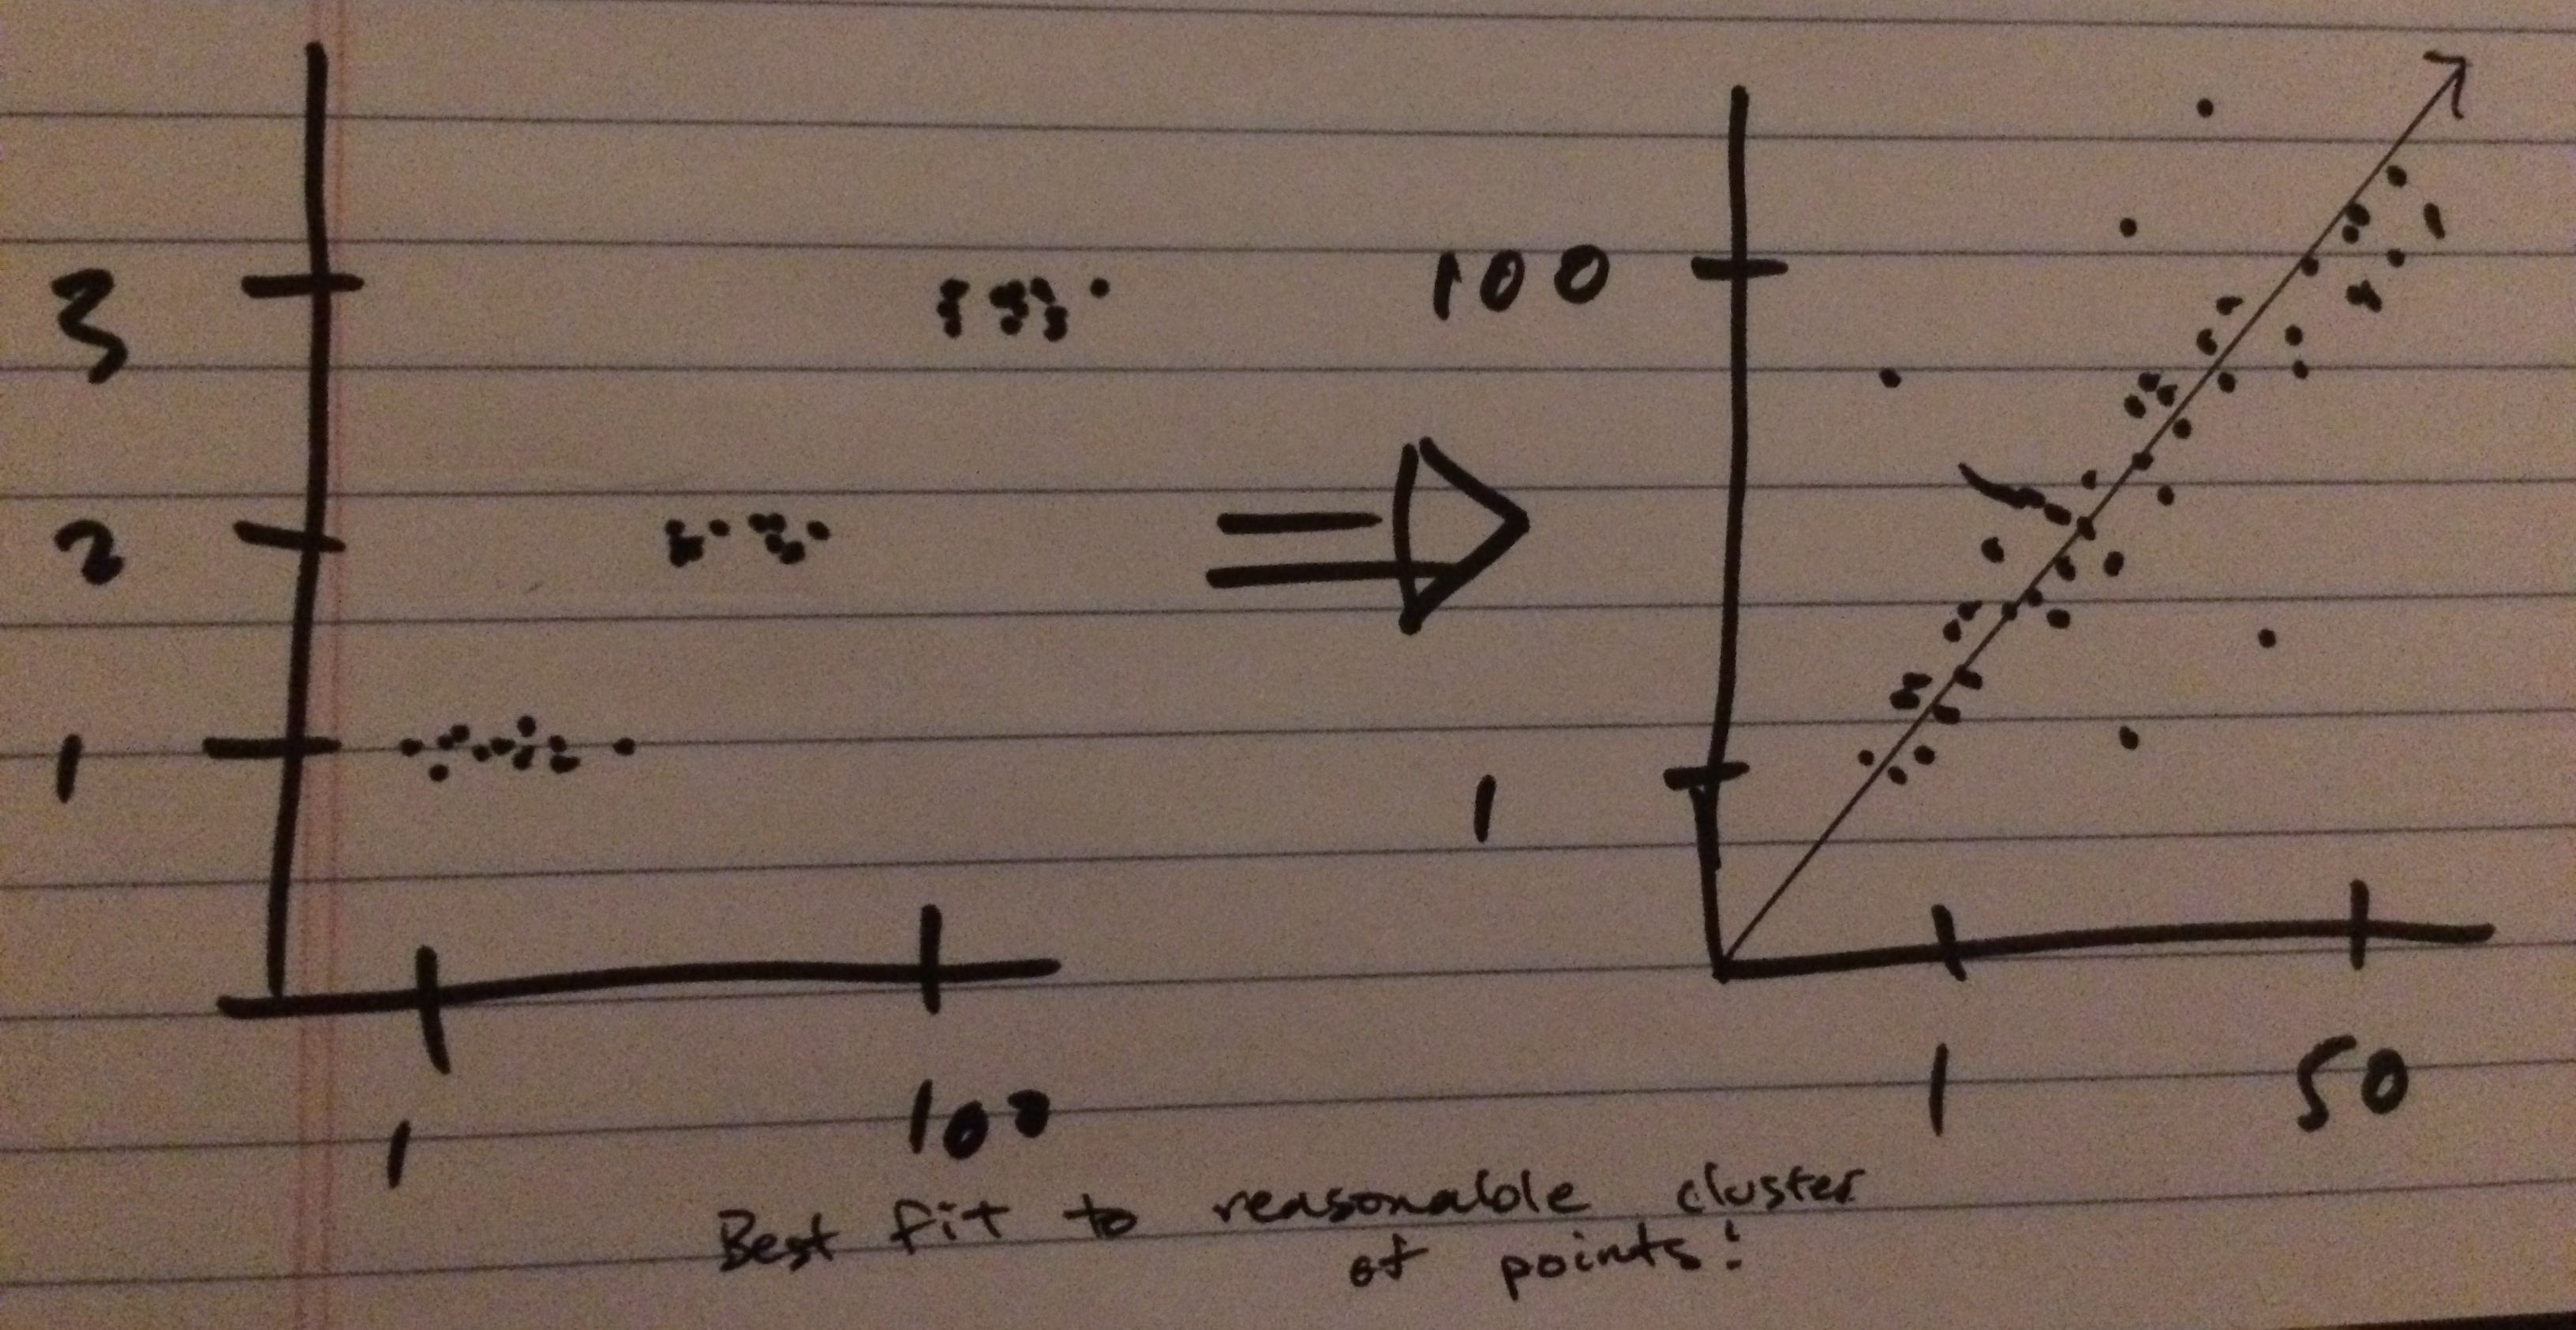 3
2
1
1
100
100
1
1
50
Best fit to reasonable cluster
of points!